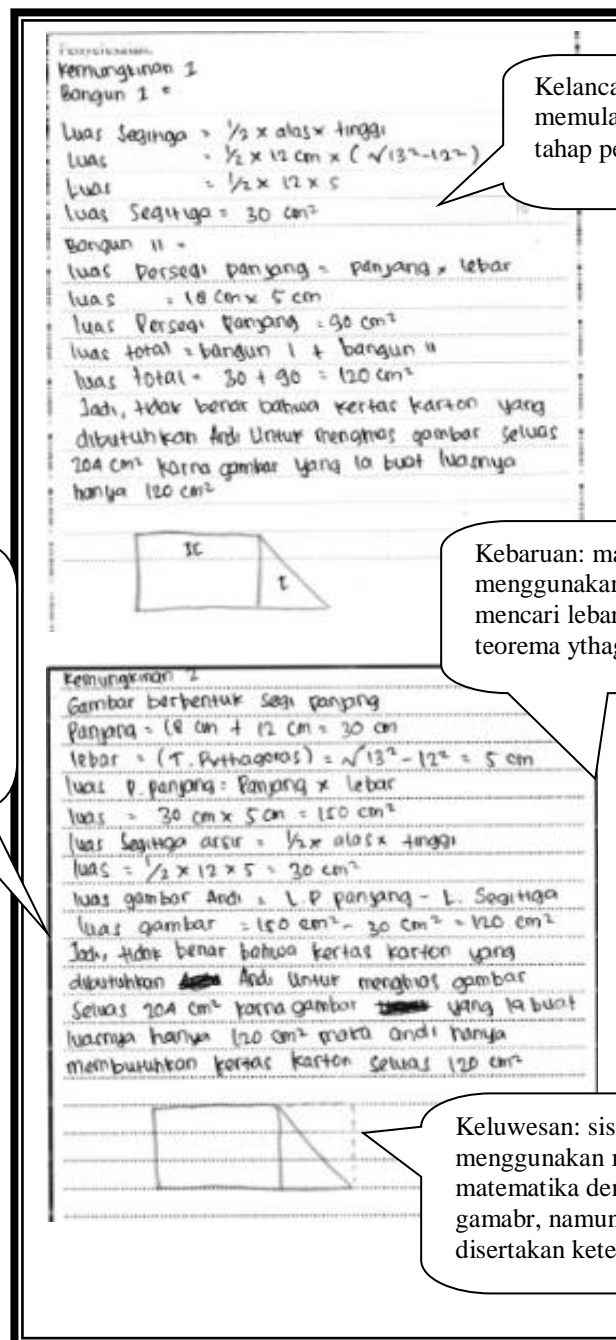 Penyelesaian.
Kemungkinan I
Bangun 1 =
Luas Segitiga = 1/2 x alas x tinggi
Luas = 1/2 x 12 cm x (√13²-12²)
Luas = 1/2 x 12 x 5
luas Segitiga = 30 cm²
Bangun II =
luas Persegi panjang = panjang x lebar
luas = 18 cm x 5 cm
luas Persegi Panjang = 90 cm²
luas total = bangun I + bangun II
luas total = 30 + 90 = 120 cm²
Jadi, tidak benar bahwa kertas karton yang
dibutuhkan Andi Untuk menghias gambar seluas
204 cm² karna gambar yang ia buat luasnya
hanya 120 cm²
II
I
Kelanca
memula
tahap pe
Kebaruan: ma
menggunakan
mencari lebar
teorema ythag
Kemungkinan 2
Gambar berbentuk segi panjang
Panjang = 18 cm + 12 cm = 30 cm
lebar = (T. Pythagoras) = √13² - 12² = 5 cm
luas P. panjang = Panjang x lebar
luas = 30 cm x 5 cm = 150 cm²
luas Segitiga arsir = 1/2 x alas x tinggi
luas = 1/2 x 12 x 5 = 30 cm²
luas gambar Andi = L. P panjang - L. Segitiga
luas gambar = 150 cm² - 30 cm² = 120 cm²
Jadi, tidak benar bahwa kertas karton yang
dibutuhkan Andi Untuk menghias gambar
Seluas 204 cm² karna gambar yang ia buat
luasnya hanya 120 cm² maka andi hanya
membutuhkan kertas karton seluas 120 cm²
Keluwesan: sis
menggunakan
matematika den
gamabr, namun
disertakan kete